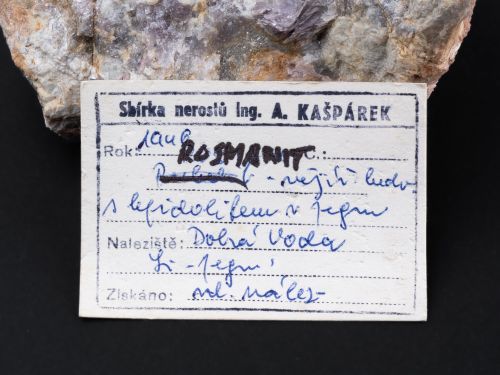 Sbírka nerostů Ing. A. KAŠPÁREK
Rok:
ROSMANIT
s lepidolitem v pegm
Naleziště: Dobrá Voda
Li-pegm
Získáno: vl. nález